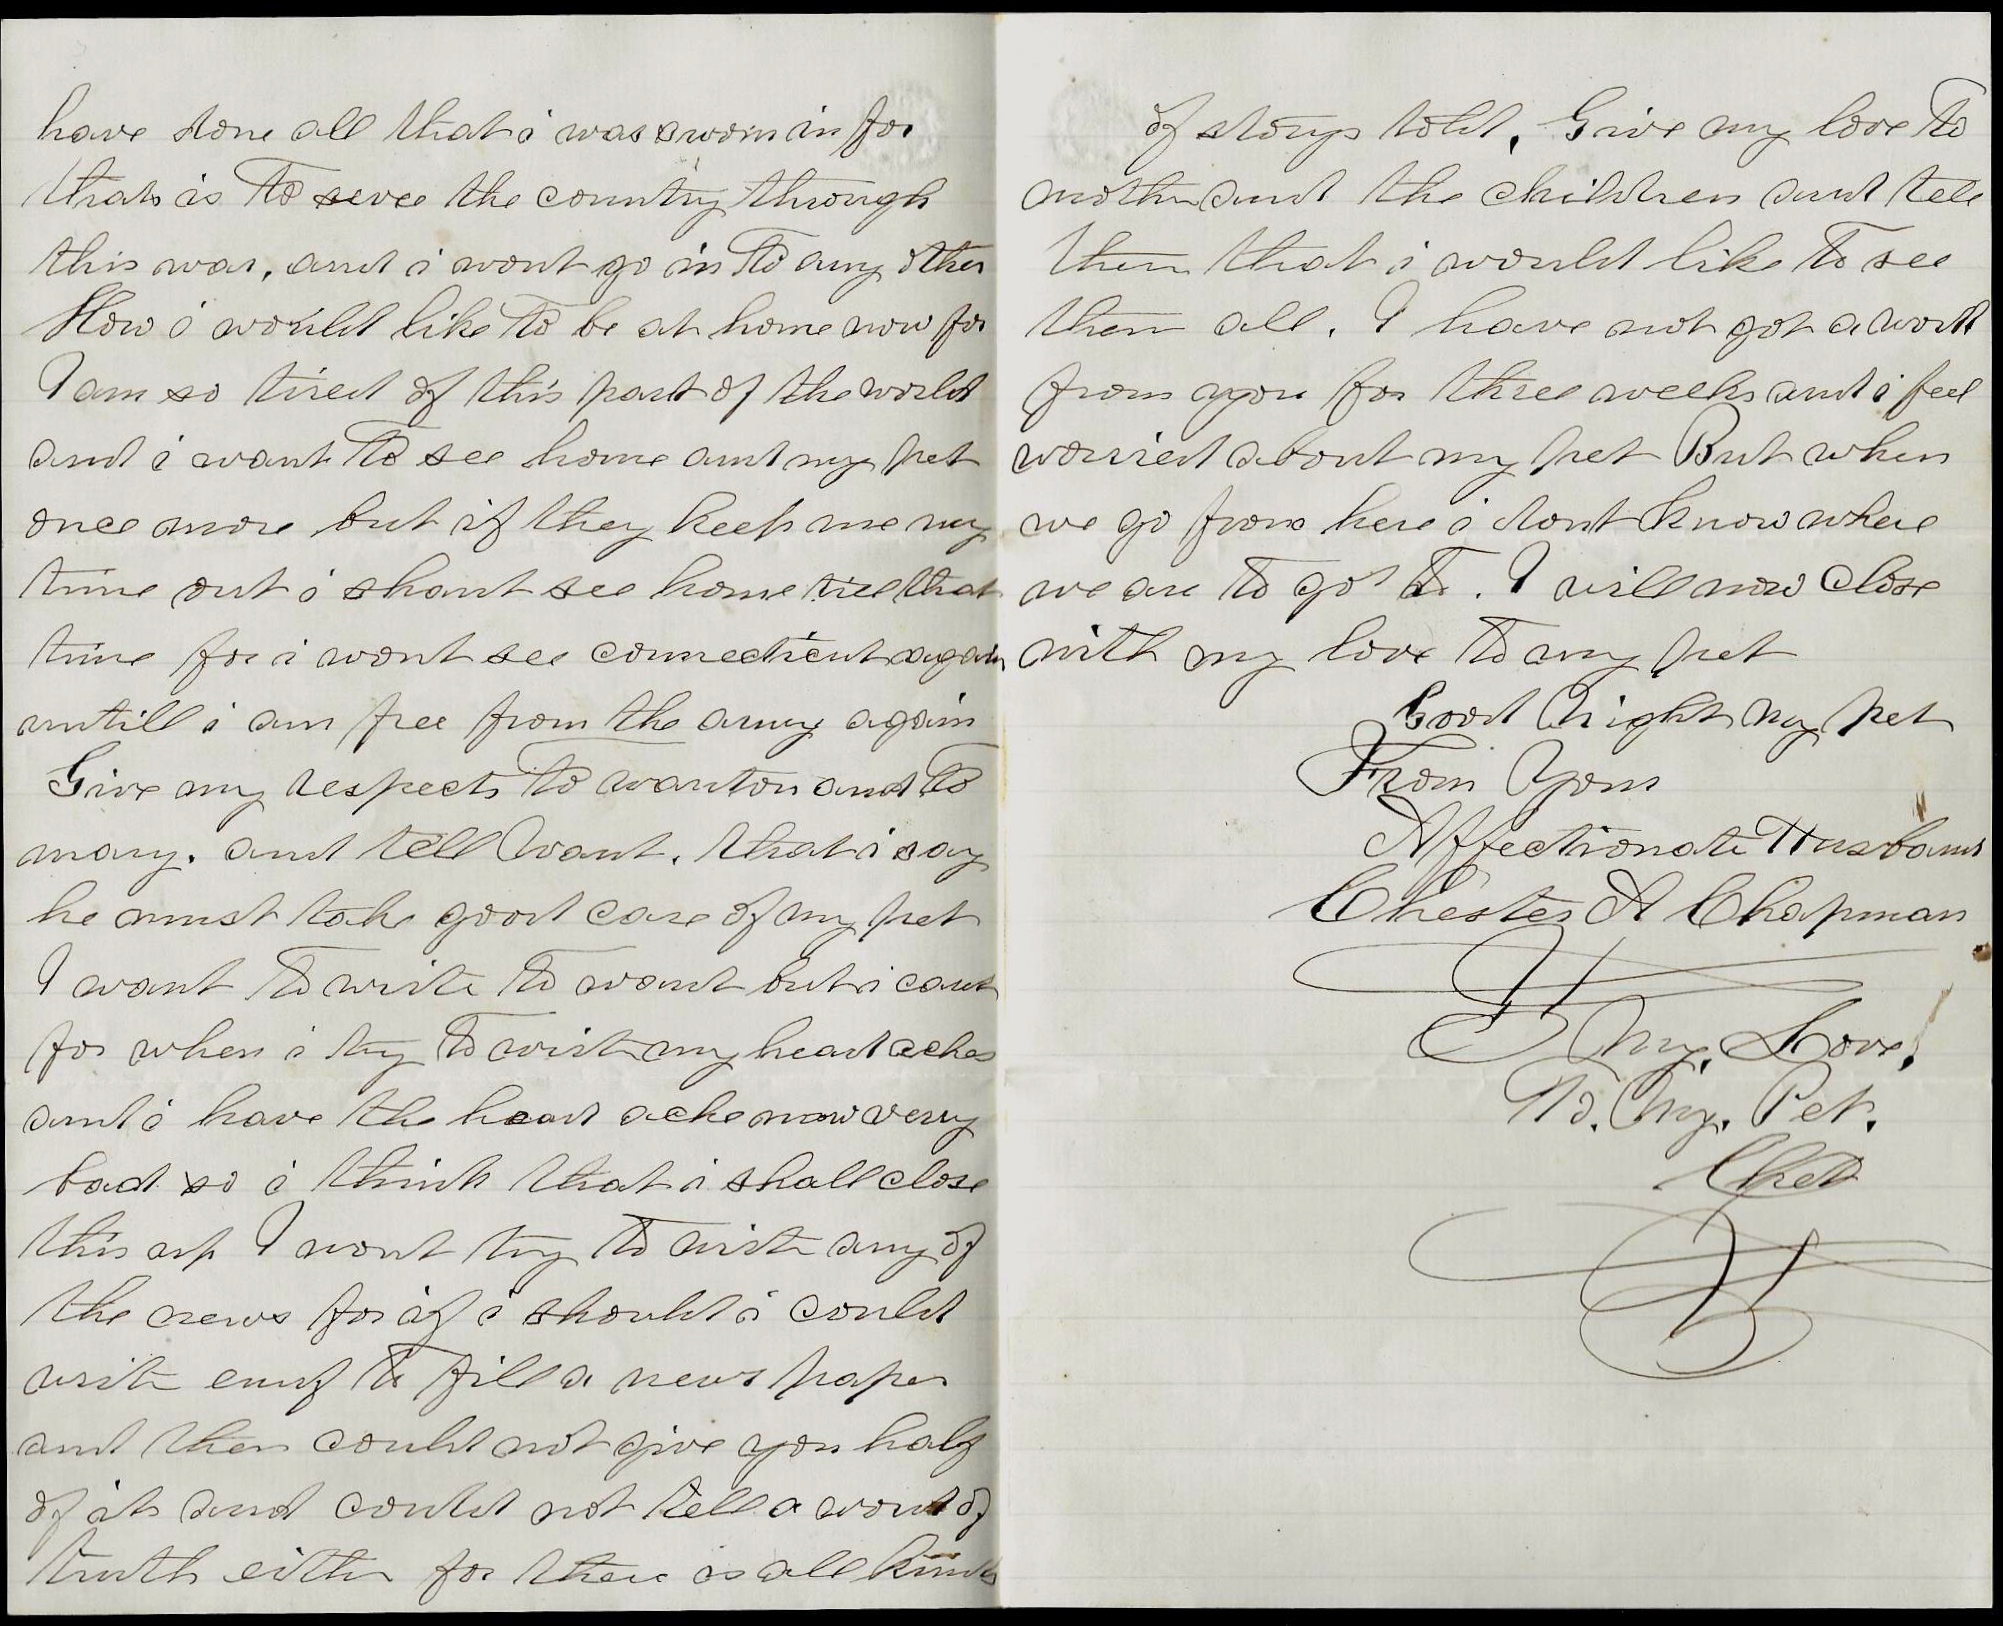 have done all that i was sworn in for
that is To serve the country through
this war, and i wont go in To any other
How i would like To be at home now for
I am so tired of this part of the world
and i want To see home and my pet
once more but if they keep me my
time out i shant see home till that
time for i wont see connecticut again
untill i am free from the army again
Give my respects To wanton and To
mary. and tell Want. that i say
he must take good care of my pet
I want To write To want but i cant
for when i try To write my head aches
and i have the head ache now very
bad so i think that i shall close
this up I wont try To write any of
the news for if i should i could
write enuf To fill a news paper
and then could not give you half
of it and could not tell a word of
truth either for there is all kinds
of storys told. Give my love To
mother and the children and tell
them that i would like To see
them all. I have not got a word
from you for three weeks and i feel
worried about my pet But when
we go from here i dont know where
we are To go To. I will now close
with my love To my pet
Good Night my pet
From Your
Affectionate Husband
Chester A Chapman
My. Love!
To. My. Pet.
Chet